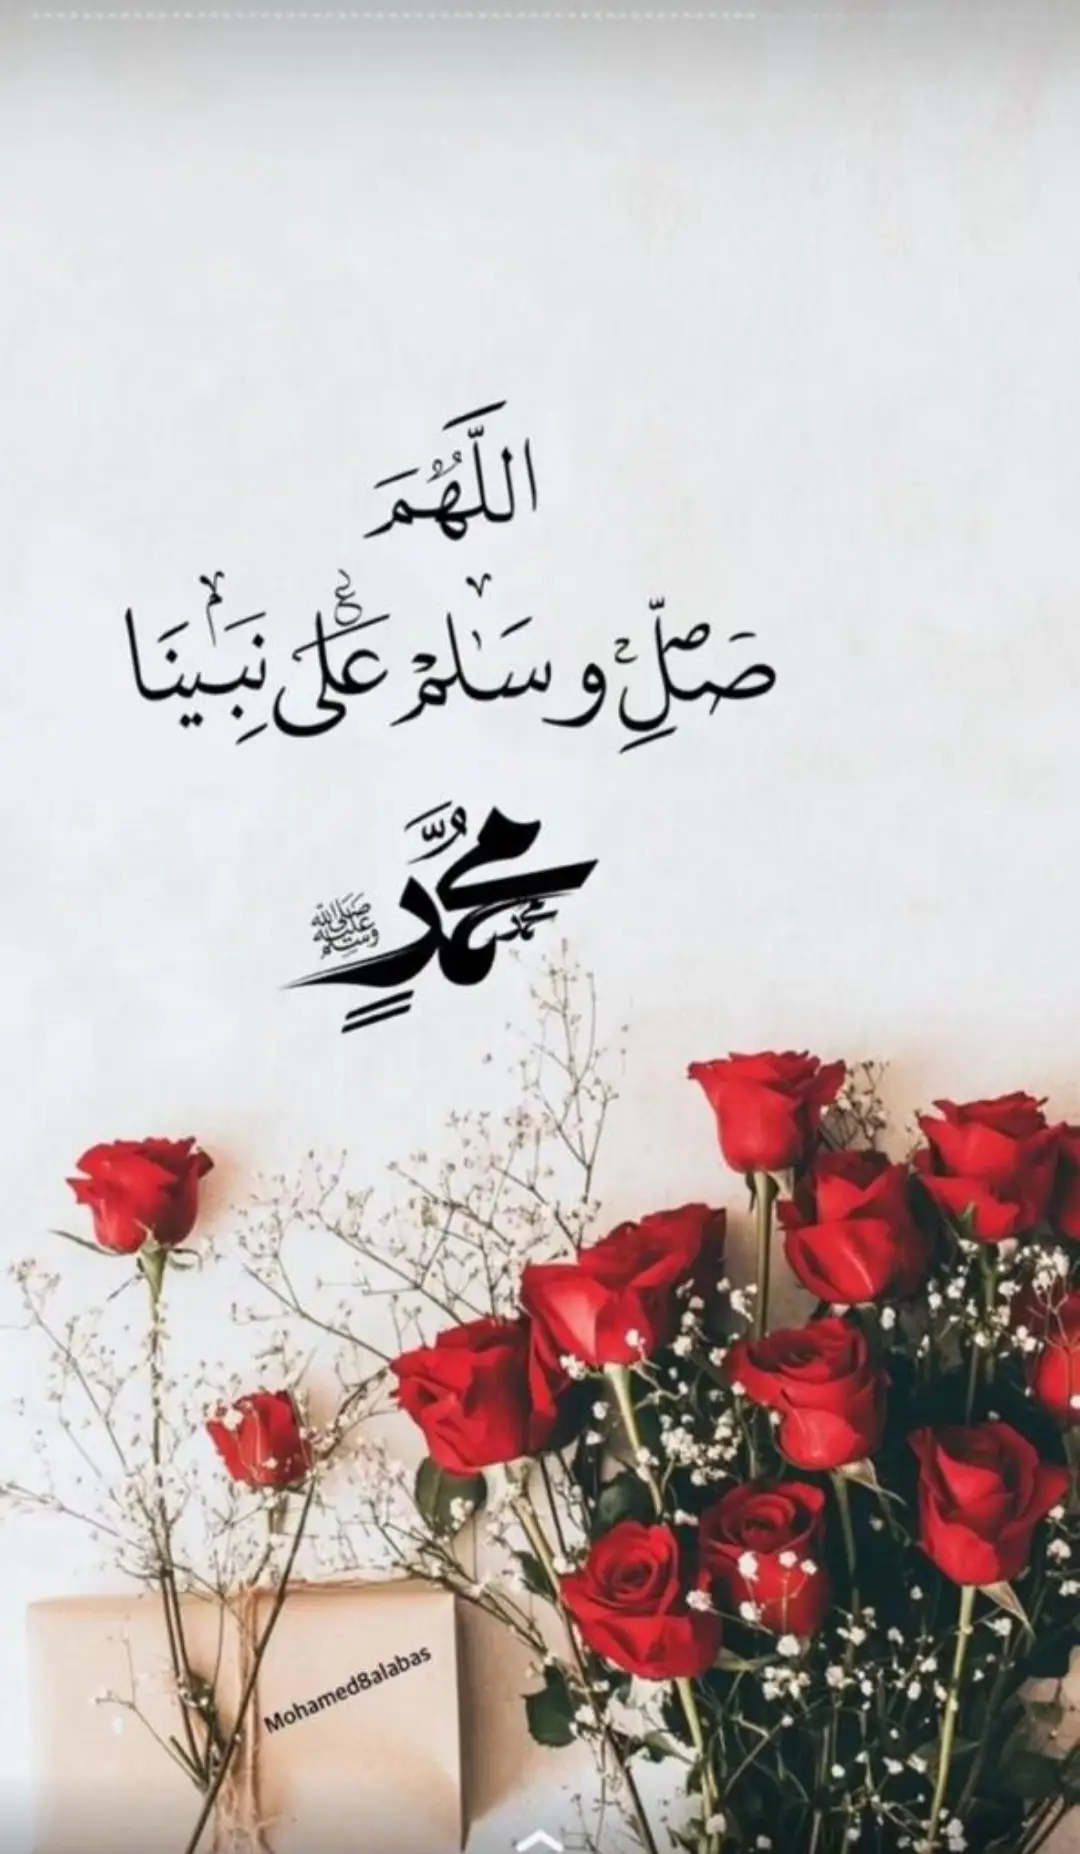 اللَّهُمَ
صَلِّ وسَلم عَلَى نَبِينَا
مُحمَّدٍ
صلى الله عليه وسلم
محمد
MohamedBalabas